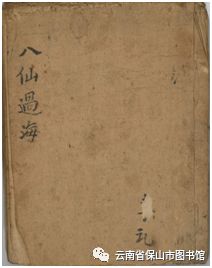 八仙過海
礼
云南省保山市图书馆